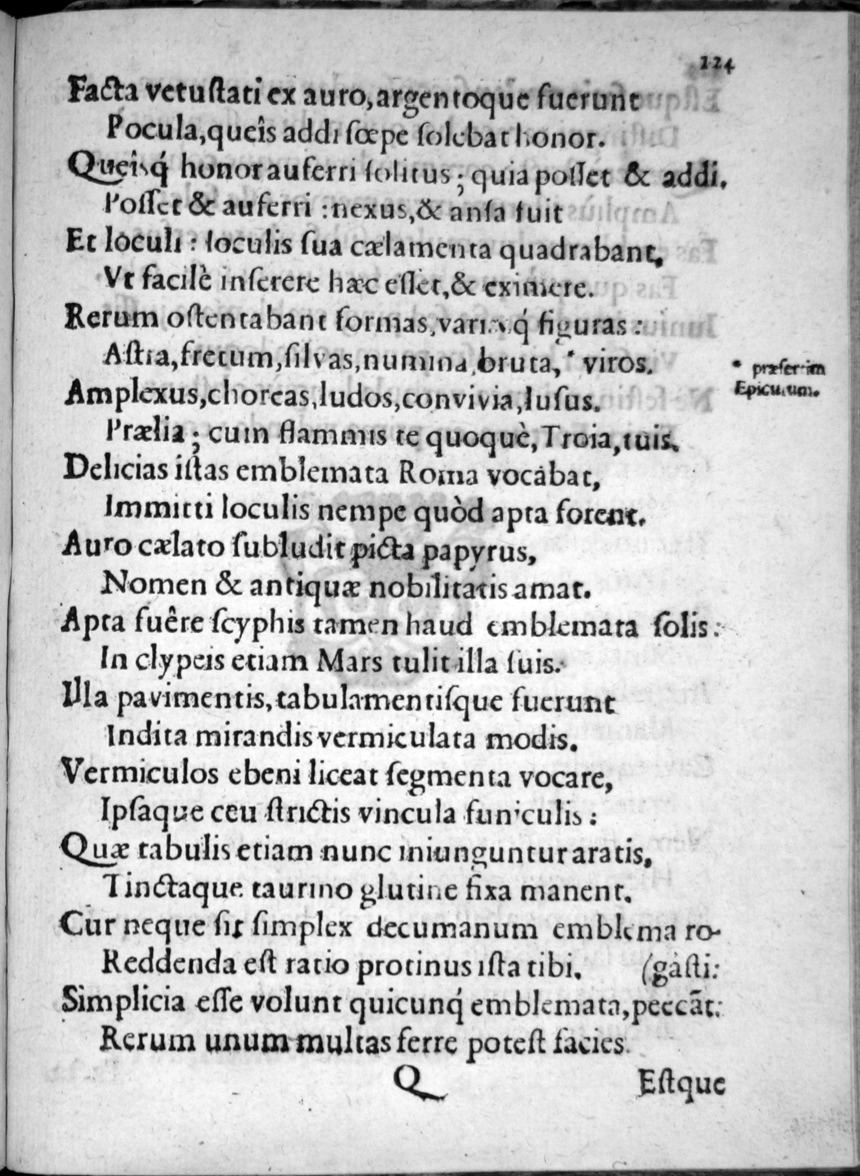 124
Facta vetuſtati ex auro, argentoque fuerunt
Pocula, queîs addi ſœpe ſolebat honor.
Queîsq́ honor auferri ſolitus; quia poſſet & addi.
Poſſet & auferri: nexus, & anſa fuit
Et loculi: loculis ſua cælamenta quadrabant,
Vt facilè inſerere hæc eſſet, & eximere.
Rerum oſtentabant formas, variasq́ figuras:
Aſtra, fretum, ſilvas, numina, bruta, * viros.
* præſertim
Epicurum.
Amplexus, choreas, ludos, convivia, luſus.
Prælia; cum flammis te quoquè, Troia, tuis.
Delicias iſtas emblemata Roma vocabat,
Immitti loculis nempe quòd apta forent.
Auro cælato ſubludit picta papyrus,
Nomen & antiquæ nobilitatis amat.
Apta fuêre ſcyphis tamen haud emblemata ſolis:
In clypeis etiam Mars tulit illa ſuis.
Illa pavimentis, tabulamentiſque fuerunt
Indita mirandis vermiculata modis.
Vermiculos ebeni liceat ſegmenta vocare,
Ipſaque ceu ſtrictis vincula funiculis:
Quæ tabulis etiam nunc iniunguntur aratis,
Tinctaque taurino glutine fixa manent.
Cur neque ſit ſimplex decumanum emblema ro-
Reddenda eſt ratio protinus iſta tibi. (gaſti:
Simplicia eſſe volunt quicunq́ emblemata, peccāt:
Rerum unum multas ferre poteſt facies.
Q Eſtque